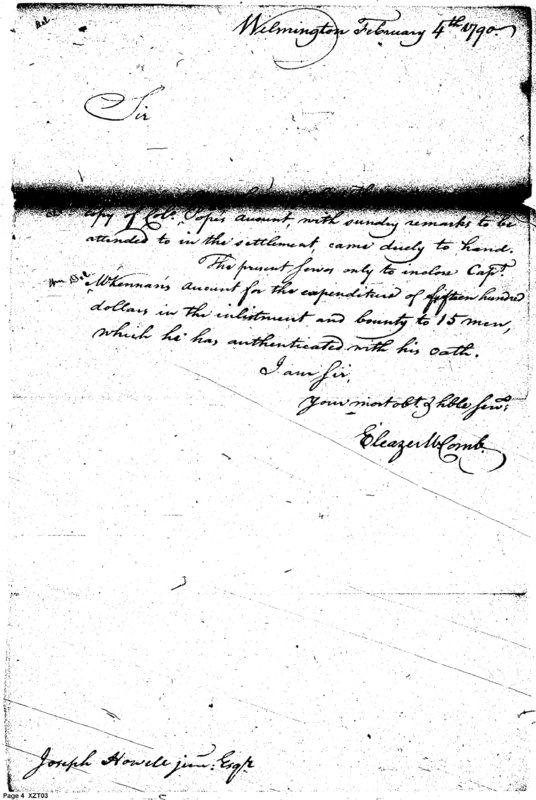 Wilmington February 4th 1790.
Sir
copy of Colo. Pope's account, with sundry remarks to be
attended to in the settlement came duely to hand.
The present serves only to inclose Capt.
McKennan's account for the expenditure of fifteen hundred
dollars in the inlistment and bounty to 15 men,
which he has authenticated with his oath.
I am Sir,
Your most obt. & hble Servt.
Eleazer McComb.
Joseph Howell junr. Esqr.
Page 4 XZT03